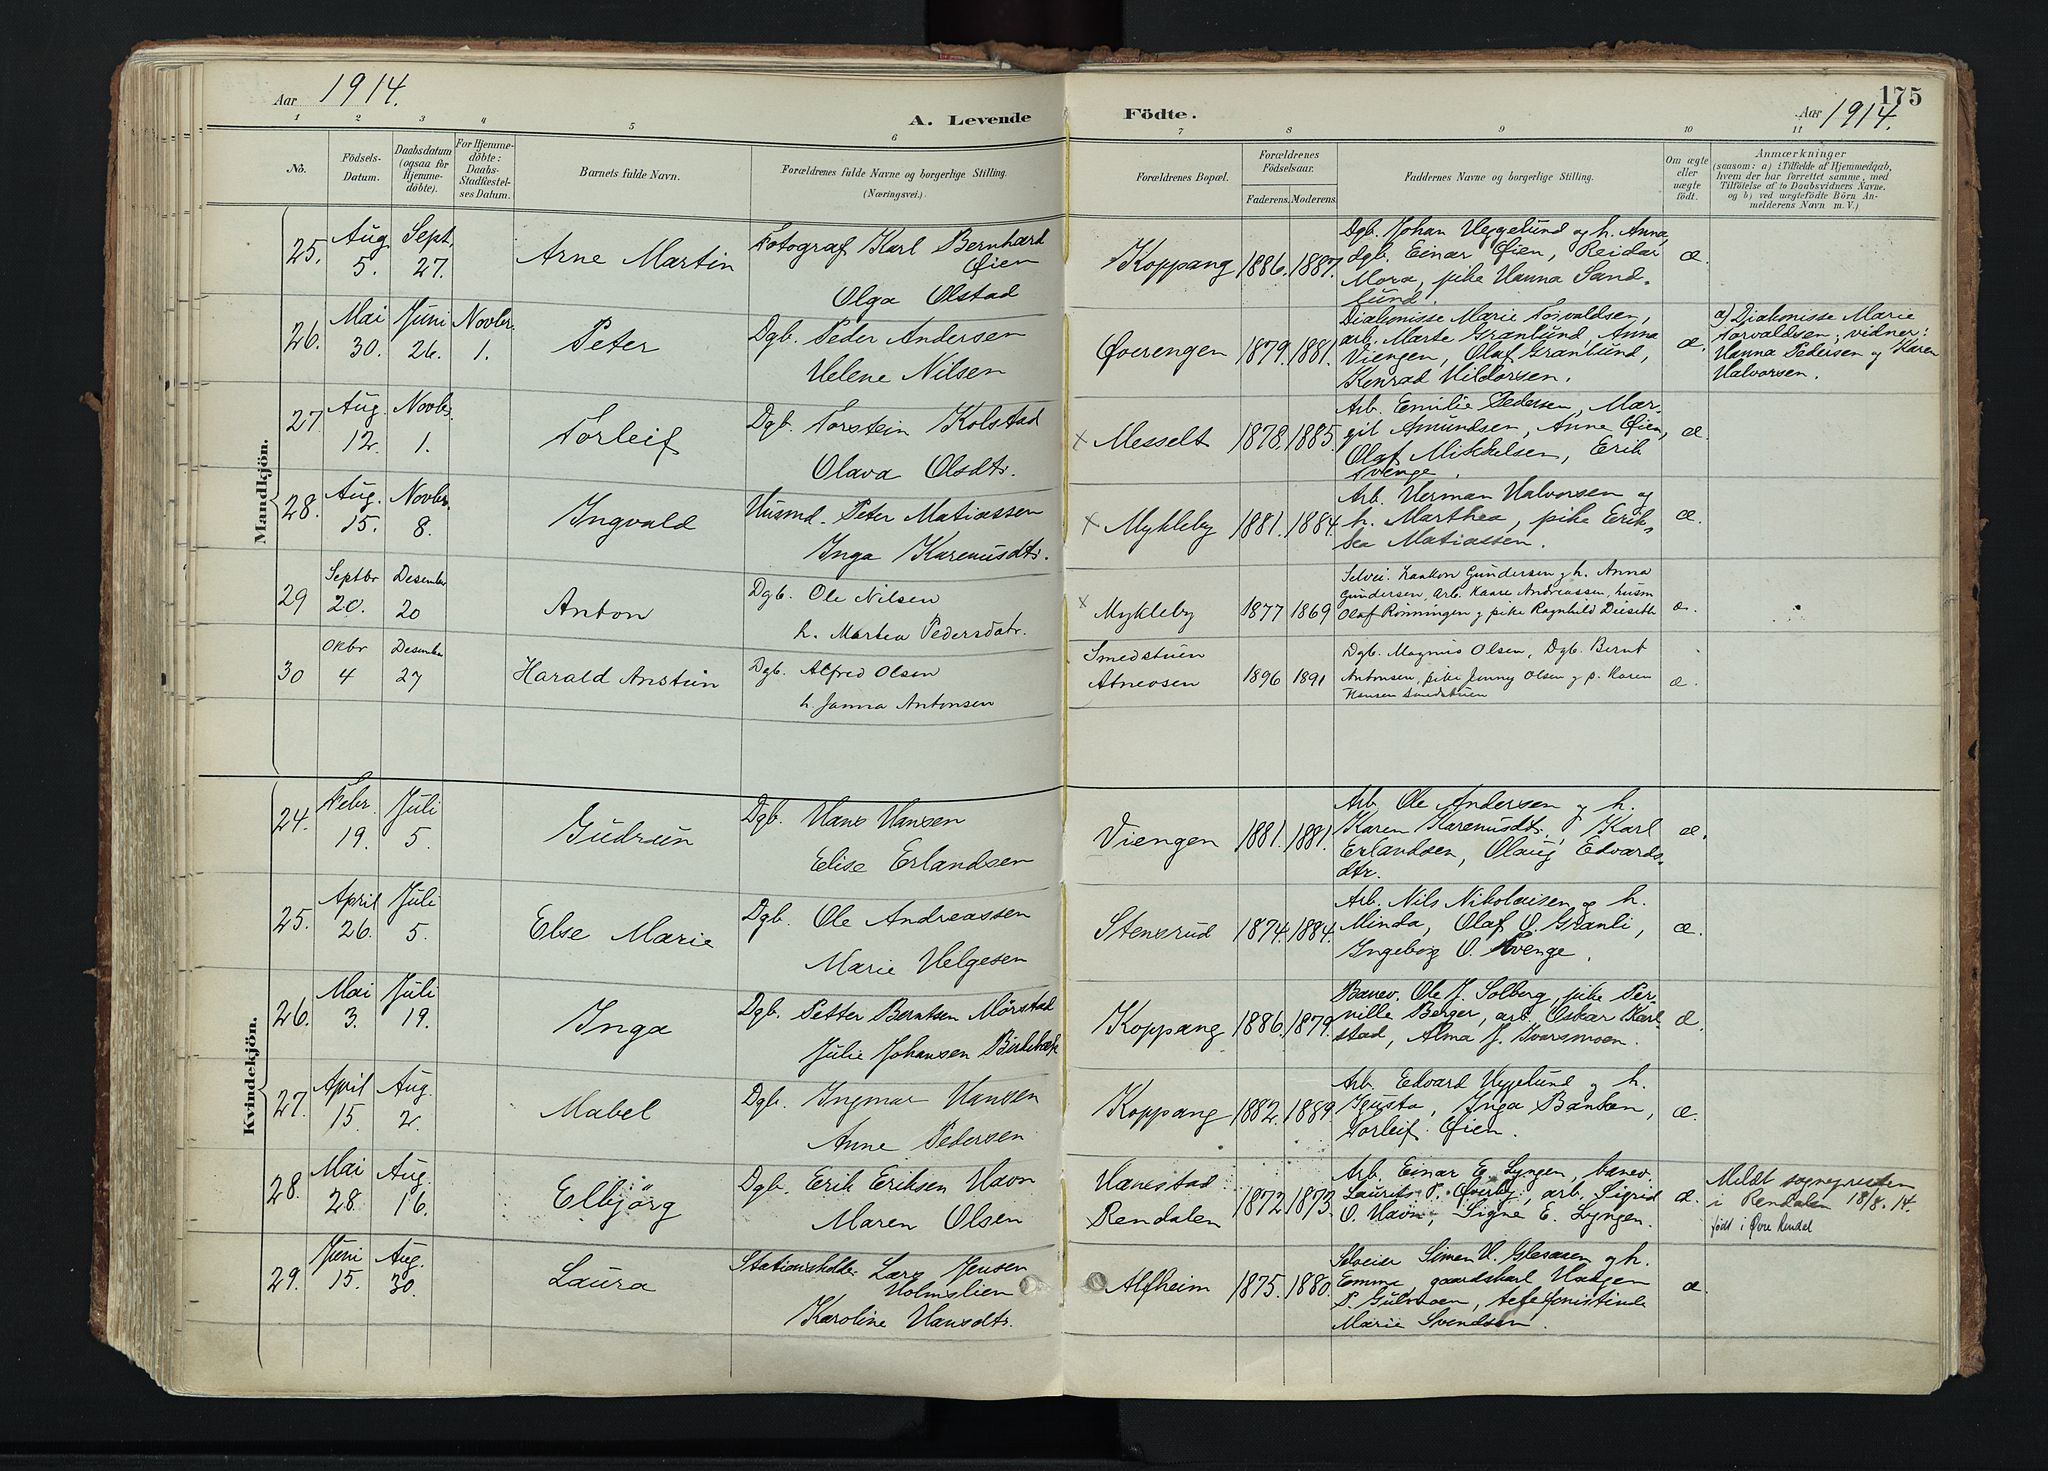 Aar 1914.
A. Levende
Födte.
Aar 1914.
175
1 2 3 4 5 6 7 8 9 10 11
No.
Födsels-
Datum.
Daabsdatum
(ogsaa for
Hjemme-
döbte).
For Hjemme-
döbte:
Daabs-
Stadfæstel-
ses Datum.
Barnets fulde Navn.
Forældrenes fulde Navne og borgerlige Stilling.
(Næringsvei.)
Forældrenes Bopæl.
Forældrenes
Födselsaar.
Faderens. Moderens.
Faddernes Navne og borgerlige Stilling.
Om ægte
eller
uægte
født.
Anmærkninger
(saasom: a) i Tilfælde af Hjemmedaab,
hvem der har forrettet samme, med
Tilföielse af to Daabsvidners Navne,
og b) ved uægtefödte Börn An-
melderens Navn m. V.)
Mandkjön.
25. Aug. 5. Sept. 27. Arne Martin
Fotograf Karl Bernhard
Øien
Olga Olstad
Koppang 1886. 1887.
Dgb. Johan Heggelund og h. Anna,
dgb. Einar Øien, Reidar
Mora, pike Hanna Sand-
lund.
æ.
26. Mai 30. Juni 26. Novbr. 1. Peter
Dgb. Peder Andersen
Helene Nilsen
Øverengen 1879. 1881.
Diakonisse Marie Torvaldsen,
arb. Marte Granlund, Anna
Viengen, Olaf Granlund,
Konrad Hildorsen.
æ.
a) Diakonisse Marie
Torvaldsen; vidner:
Hanna Pedersen og Karen
Halvorsen.
27. Aug. 12. Novbr. 1. Torleif
Dgb. Torstein Kolstad
Olava Olsdtr.
x Messelt 1878. 1885
Arb. Emilie Pedersen, Mar-
git Amundsen, Anne Øien,
Olaf Mikkelsen, Erik
Tvenge.
æ.
28. Aug. 15. Novbr. 8. Ingvald
Husmd. Peter Matiassen
Inga Karenusdtr.
x Mykleby 1881. 1884.
Arb. Herman Halvorsen og
h. Marthea, pike Erik-
sea Matiassen.
æ.
29 Septbr 20. Desember 20 Anton
Dgb. Ole Nilsen
h. Martea Pedersdatr.
x Mykleby 1877 1869
Selvei. Haakon Gundersen og h. Anna
Gundersen, Arb. Kaare Andreassen, husm
Olaf Rønningen og pike Ragnhild Deiseth
æ.
30 Okbr 4 Desember 27 Harald Anstein
Dgb. Alfred Olsen
h. Janna Antonsen
Smedstuen
Atneosen 1896 1891
Dgb. Magnus Olsen, Dgb. Bernt
Antonsen, pike Jenny Olsen og p. Karen
Hansen Smedstuen
æ.
Kvindekjön.
24. Febr. 19. Juli 5. Gudrun
Dgb. Hans Hansen
Elise Erlandsen
Viengen 1881. 1881.
Arb. Ole Andersen og h.
Karen Karenusdtr., Karl
Erlandsen, Olaug Edvards-
dtr.
æ.
25. April 26. Juli 5. Else Marie
Dgb. Ole Andreassen
Marie Helgesen
Stensrud 1874. 1884.
Arb. Nils Nikolaisen og h.
Minda, Olaf O. Granli,
Ingeborg O. Tvenge.
æ.
26. Mai 3. Juli 19. Inga
Dgb. Petter Berntsen Mørstad
Julie Johansen
Koppang 1886. 1879.
Banev. Ole J. Solberg, pike Per-
nille Berger, arb. Oskar Karl-
stad, Alma J. Ivarsmoen.
æ.
27. April 15. Aug. 2. Mabel
Dgb. Ingmar Hansen
Anne Pedersen
Koppang 1882. 1889.
Arb. Edvard Heggelund og h.
Gusta, Inga Banken,
Torleif Øien.
æ.
28. Mai 28. Aug. 16. Elbjörg
Dgb. Erik Eriksen Havn
Maren Olsen
Hanestad
Rendalen 1872 1873.
Arb. Einar E. Lyngen, banev.
Laurits P. Øverby, arb. Sigrid
O. Havn, Signe E. Lyngen.
æ.
Meldt sognepresten
i Rendalen 18/8. 14.
født i Øvre Rendal
29. Juni 15. Aug. 30. Laura
Stationsholder Lars Jensen
Holmslien
Karoline Hansdtr.
Alfheim 1875. 1880.
Selveier Simen H. Glesaasen og h.
Emma, gaardskarl
P. Gulmoen, telefonistinde
Marie Svendsen.
æ.